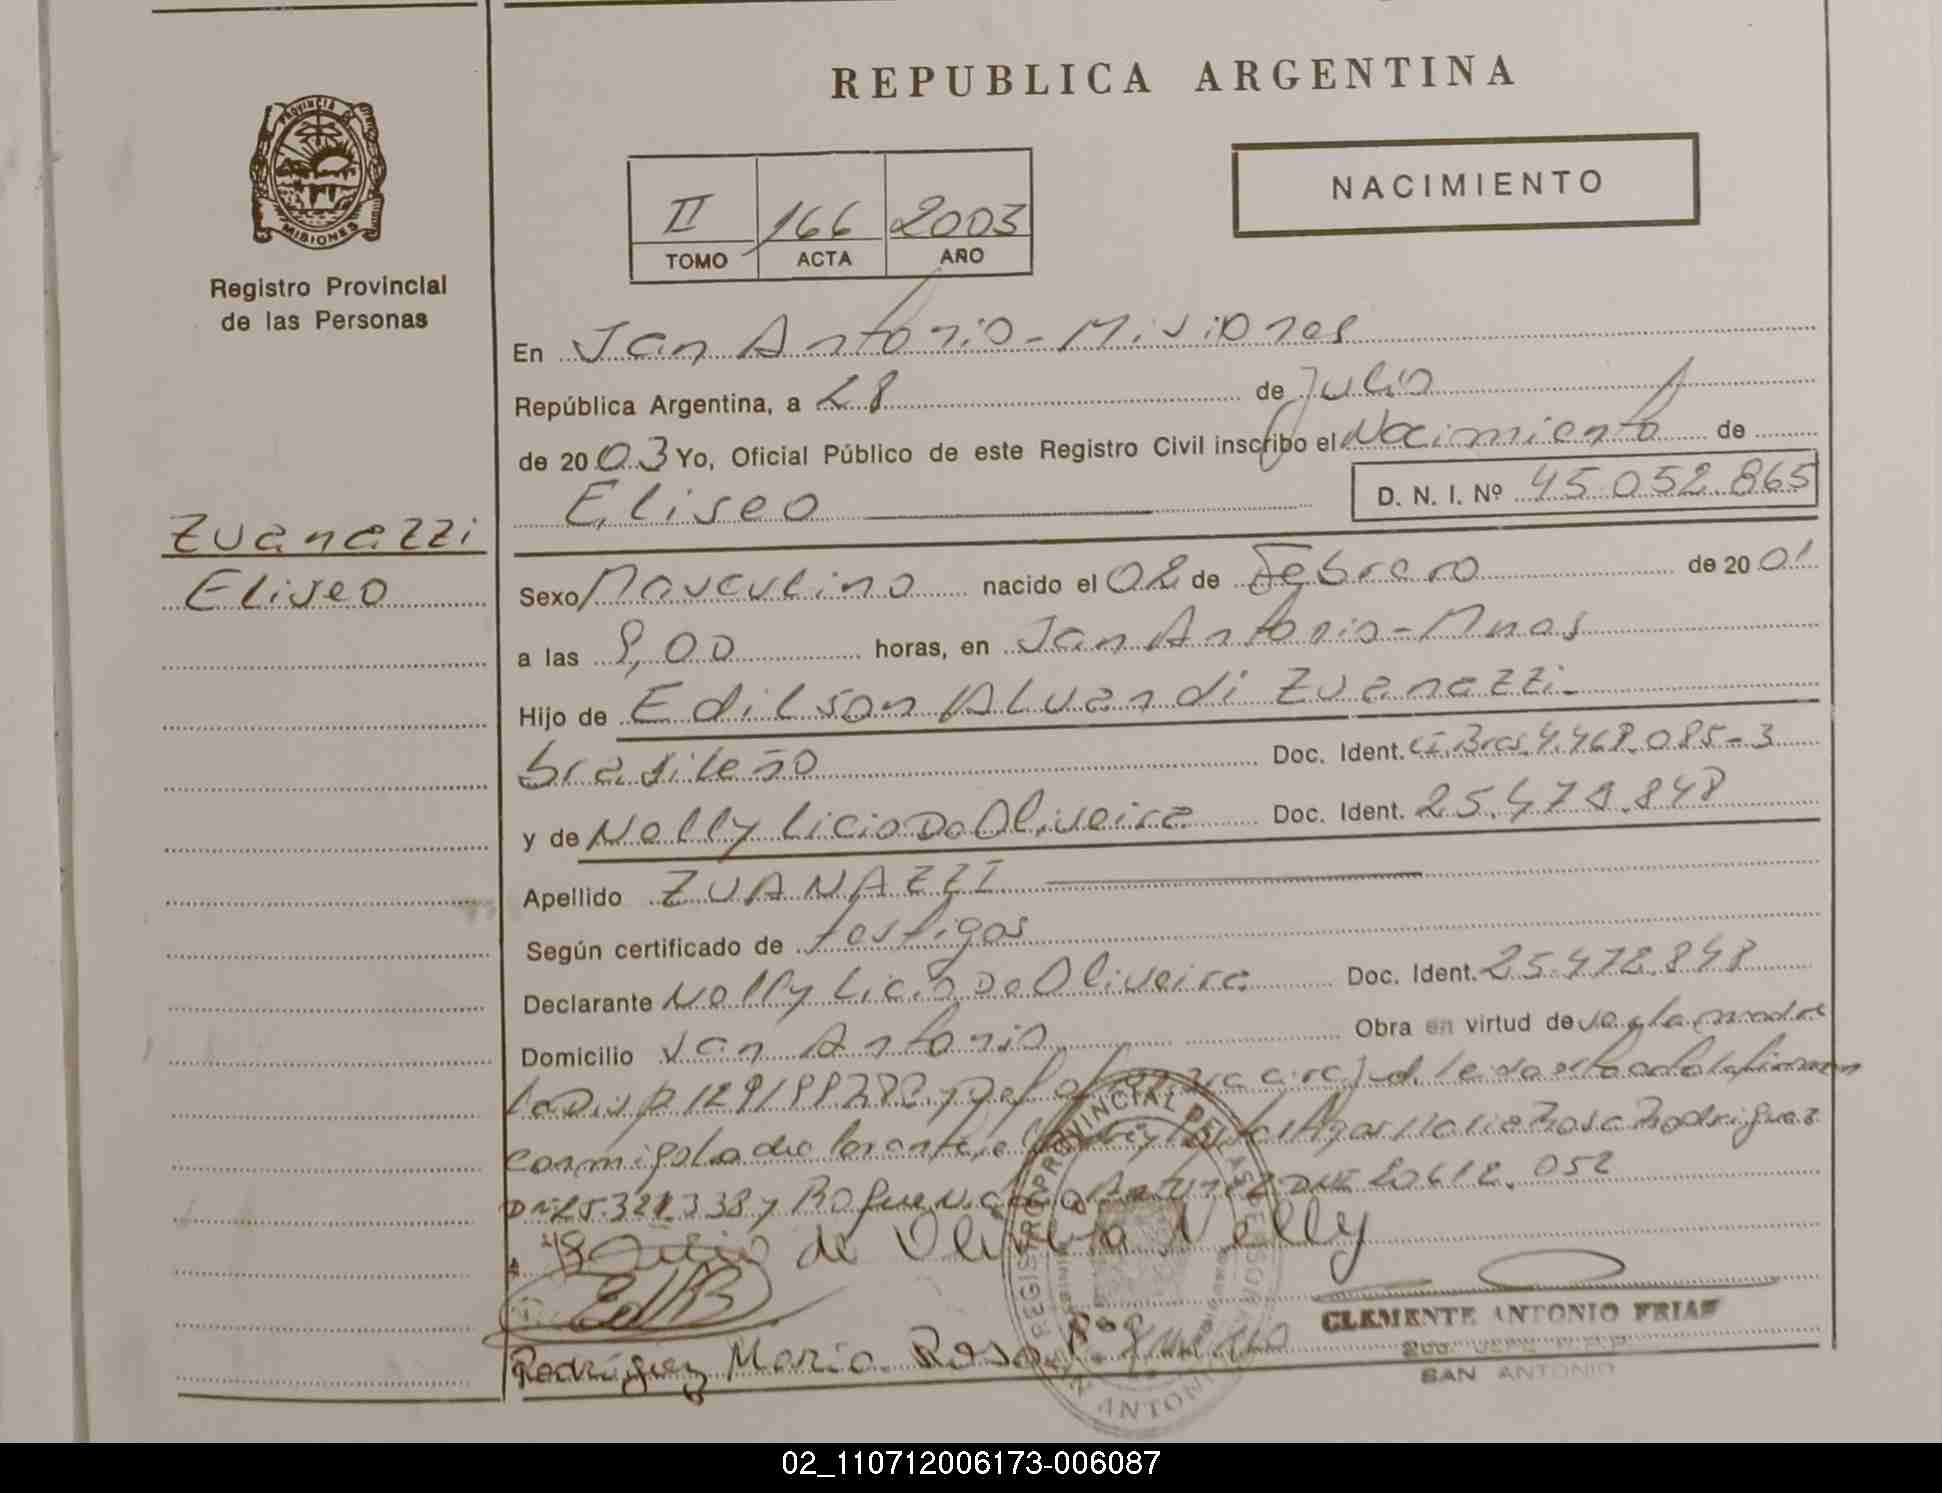 REPUBLICA ARGENTINA
PROVINCIA
MISIONES
Registro Provincial
de las Personas
NACIMIENTO
II 166 2003
TOMO ACTA AÑO
En San Antonio - Misiones
República Argentina, a 28 de Julio
de 2003 Yo, Oficial Público de este Registro Civil inscribo el Nacimiento de
Eliseo D. N. I. Nº 45.052.865
Zuanazzi
Eliseo
Sexo Masculino nacido el 02 de Febrero de 2001
a las 8,00 horas, en San Antonio - Mnes
Hijo de Edilson Alvandi Zuanazzi
brasileño Doc. Ident. CI Bras. 4.468.085-3
y de Nelly Licia Do Oliveira Doc. Ident. 25.478.848
Apellido ZUANAZZI
Según certificado de testigos
Declarante Nelly Licia Do Oliveira Doc. Ident. 25.478.848
Domicilio San Antonio Obra en virtud de la madre
la Disp 129/99 leida esta acta la firman
conmigo la declarante, testigos Maria Rosa Rodriguez
y 20612.052
de Oliveira Nelly
Rodriguez Maria Rosa
REGISTRO PROVINCIAL DE LAS PERSONAS
SAN ANTONIO
CLEMENTE ANTONIO FRIAS
SAN ANTONIO
02_110712006173-006087